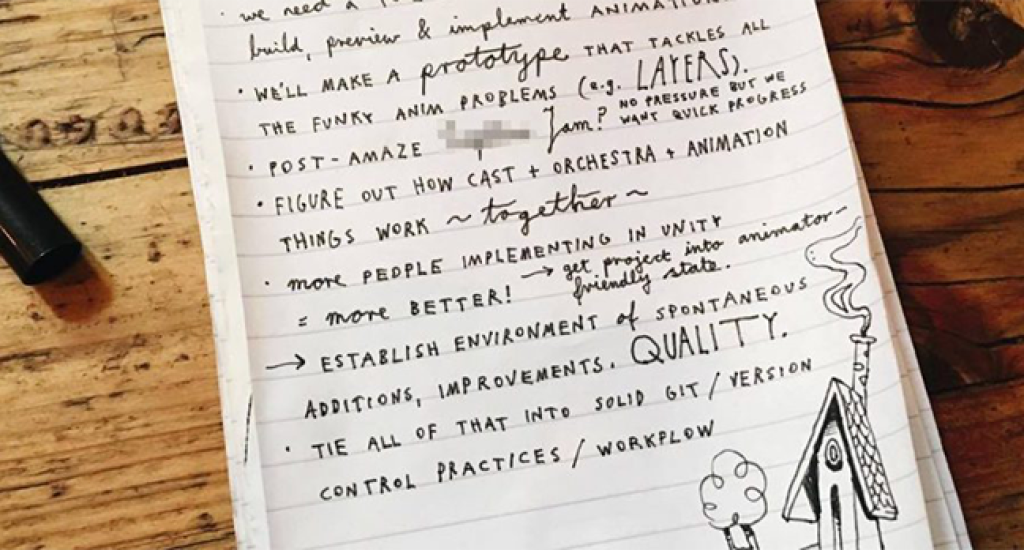 · we need a
build, preview & implement ANIMATION
· WE'LL MAKE A prototype THAT TACKLES ALL
THE FUNKY ANIM PROBLEMS (e.g. LAYERS).
· POST-AMAZE Jam? NO PRESSURE BUT WE
WANT QUICK PROGRESS
· FIGURE OUT HOW CAST + ORCHESTRA + ANIMATION
THINGS WORK ~ together ~
· more PEOPLE IMPLEMENTING IN UNITY
= more BETTER! → get project into animator-
friendly state.
→ ESTABLISH ENVIRONMENT of SPONTANEOUS
ADDITIONS, IMPROVEMENTS. QUALITY.
· TIE ALL OF THAT INTO SOLID GIT / VERSION
CONTROL PRACTICES / WORKFLOW